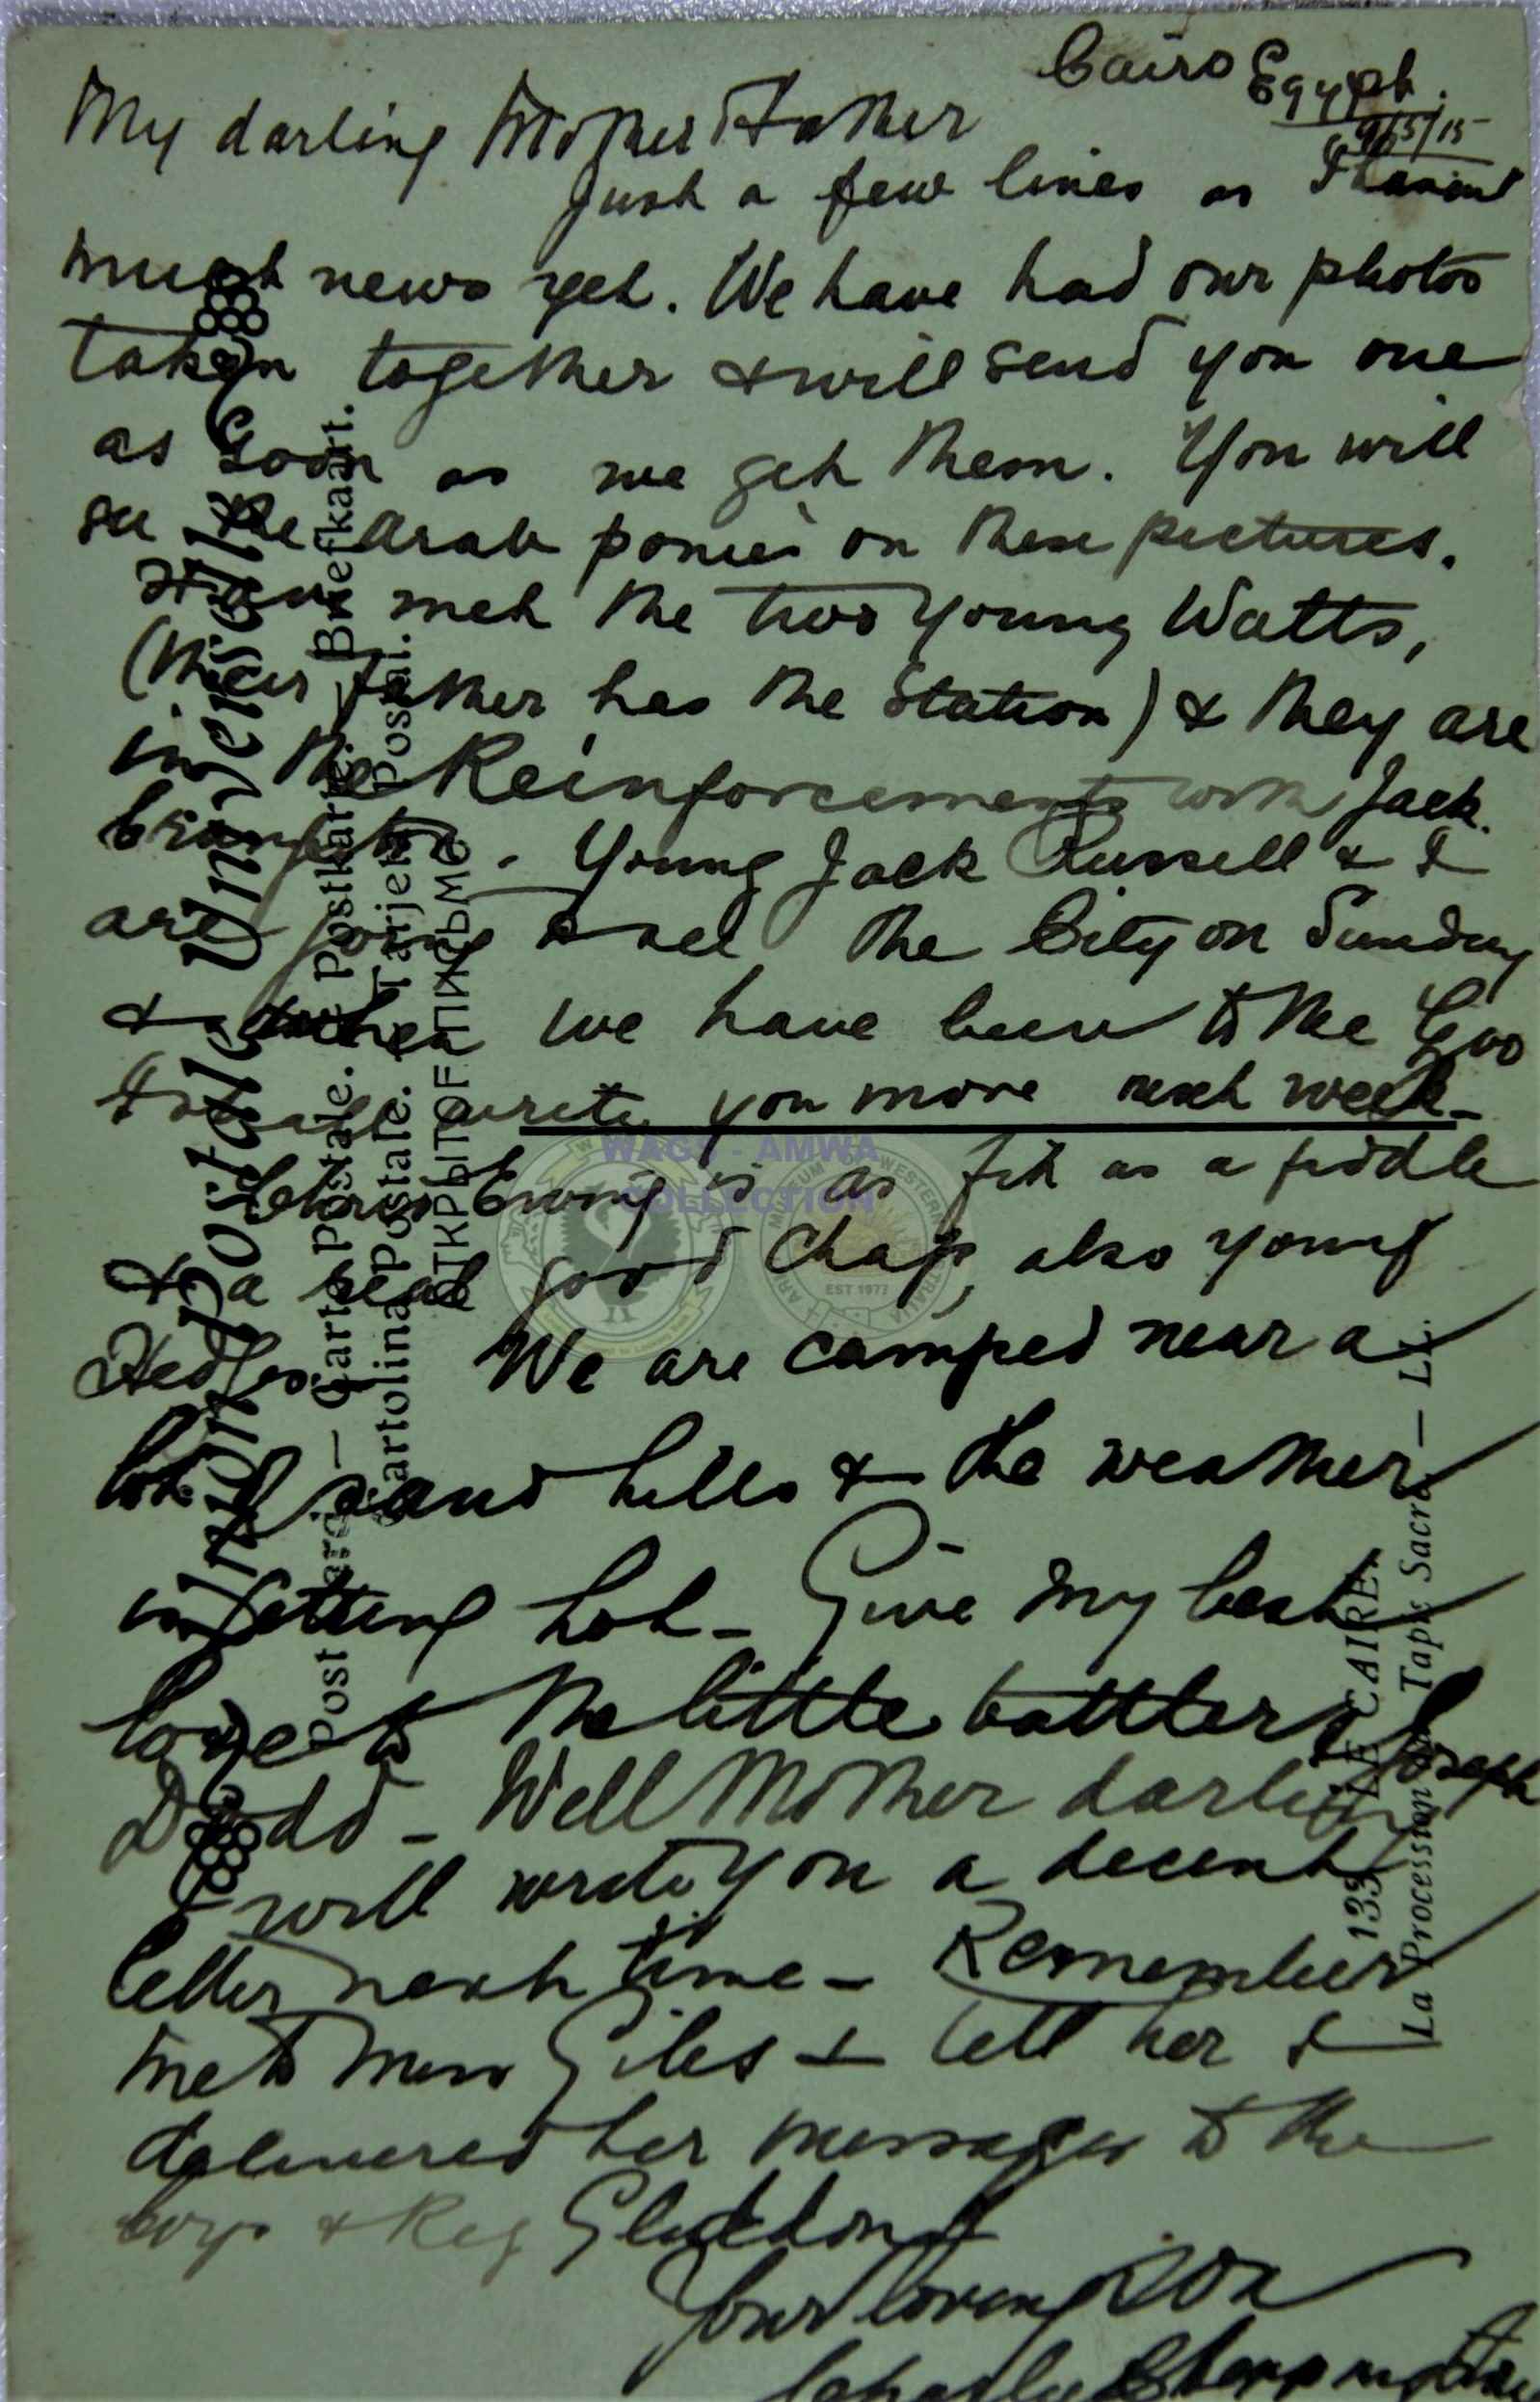 Cairo Egypt.
9/5/15
My darling Mother & Father
Just a few lines as I havent
much news yet. We have had our photos
taken together & will send you one
as soon as we get them. You will
see the Arab ponies on these pictures.
Have met the two young Watts,
(their father has the Station) & they are
in the Reinforcements with Jack
. Young Jack Russell & I
are going to see the City on Sunday
& when we have been to the Zoo
I will write you more next week-
Chris Ewing is as fit as a fiddle
& a real good chap, also young
Hedges. We are camped near a
lot of sand hills & the weather
is getting hot- Give my best
love to the little battler Joseph
Dodd - Well Mother darling
I will write you a decent
letter next time - Remember
me to Miss Giles & tell her I
delivered her messages to the
boys & Reg
Your loving son
Charly
Union Postale Universelle
Post card — Carte postale. Postkarte. — Briefkaart.
Cartolina postale. Tarjeta Postal.
ОТКРЫТОЕ ПИСЬМО
133 LE CAIRE.
La Procession du Tapis Sacré — LL.
WAGS - AMWA
COLLECTION
EST 1977